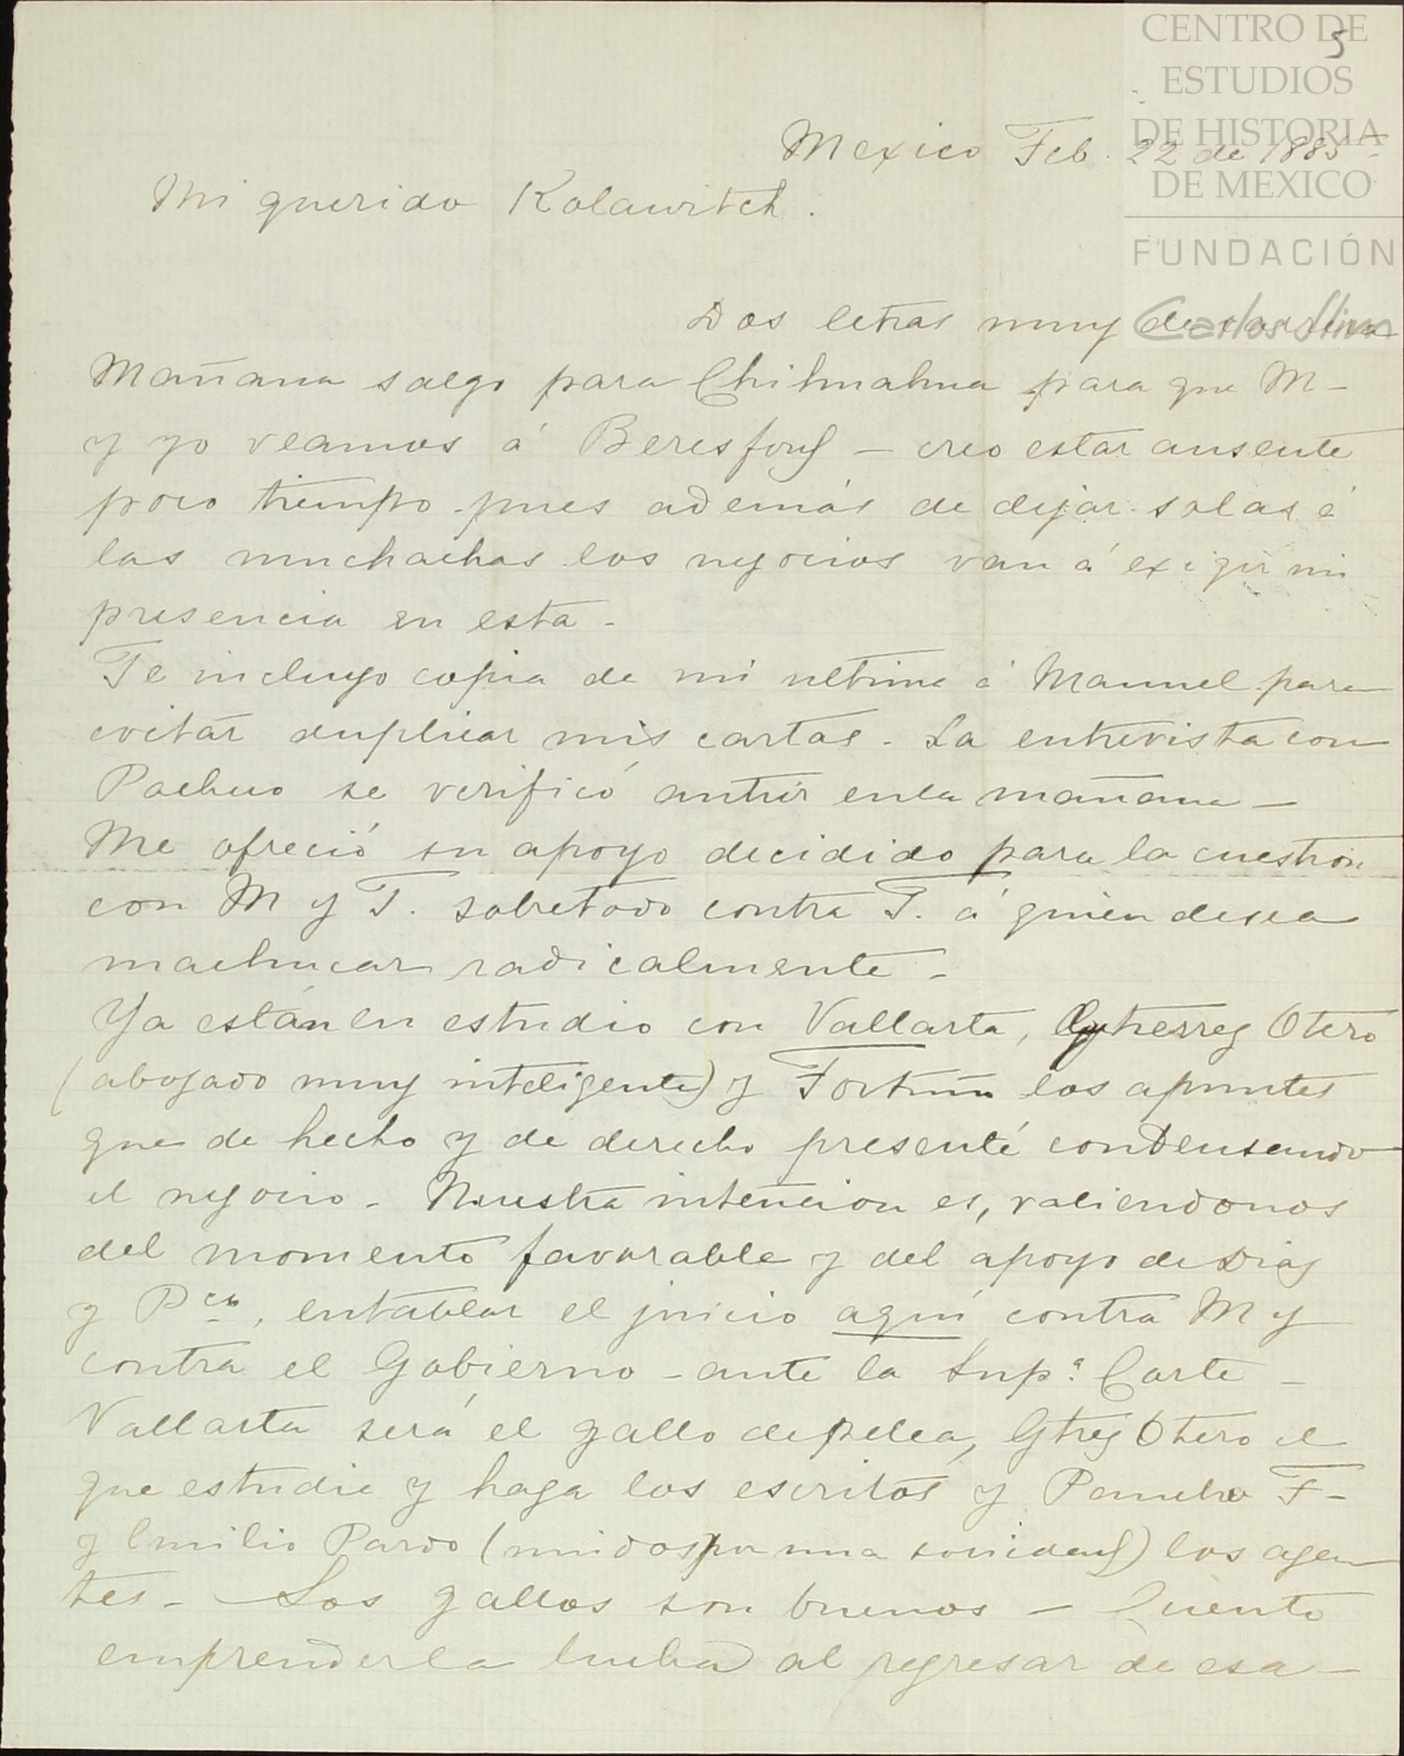 CENTRO DE
ESTUDIOS
DE HISTORIA
DE MEXICO
FUNDACIÓN
Carlos Slim
5
Mexico Feb. 22 de 1885
Mi querido Kolawitch.
Dos letras muy de carrera
Mañana salgo para Chihuahua para que M-
y yo veamos á Beresford – creo estar ausente
poco tiempo pues además de dejar solas á
las muchachas los negocios van á exigir mi
presencia en esta -
Te incluyo copia de mi ultima á Manuel para
evitar duplicar mis cartas - La entrevista con
Pacheco se verificó antier en la mañana –
Me ofreció su apoyo decidido para la cuestion
con M y T. sobretodo contra T. á quien desea
machucar radicalmente -
Ya están en estudio con Vallarta, Gutierrez Otero
(abogado muy inteligente) y Fortuño los apuntes
que de hecho y de derecho presenté condensando
el negocio - Nuestra intencion es, valiendonos
del momento favorable y del apoyo de Diaz
y Pco, entablar el juicio aqui contra M y
contra el Gobierno - ante la Supa. Corte -
Vallarta será el gallo de pelea, Gtrez Otero el
que estudie y haga los escritos y Pancho F-
y Emilio Pardo (unidos por una sociedad) los agen
tes - Los gallos son buenos – Cuento
emprender la lucha al regresar de esa -